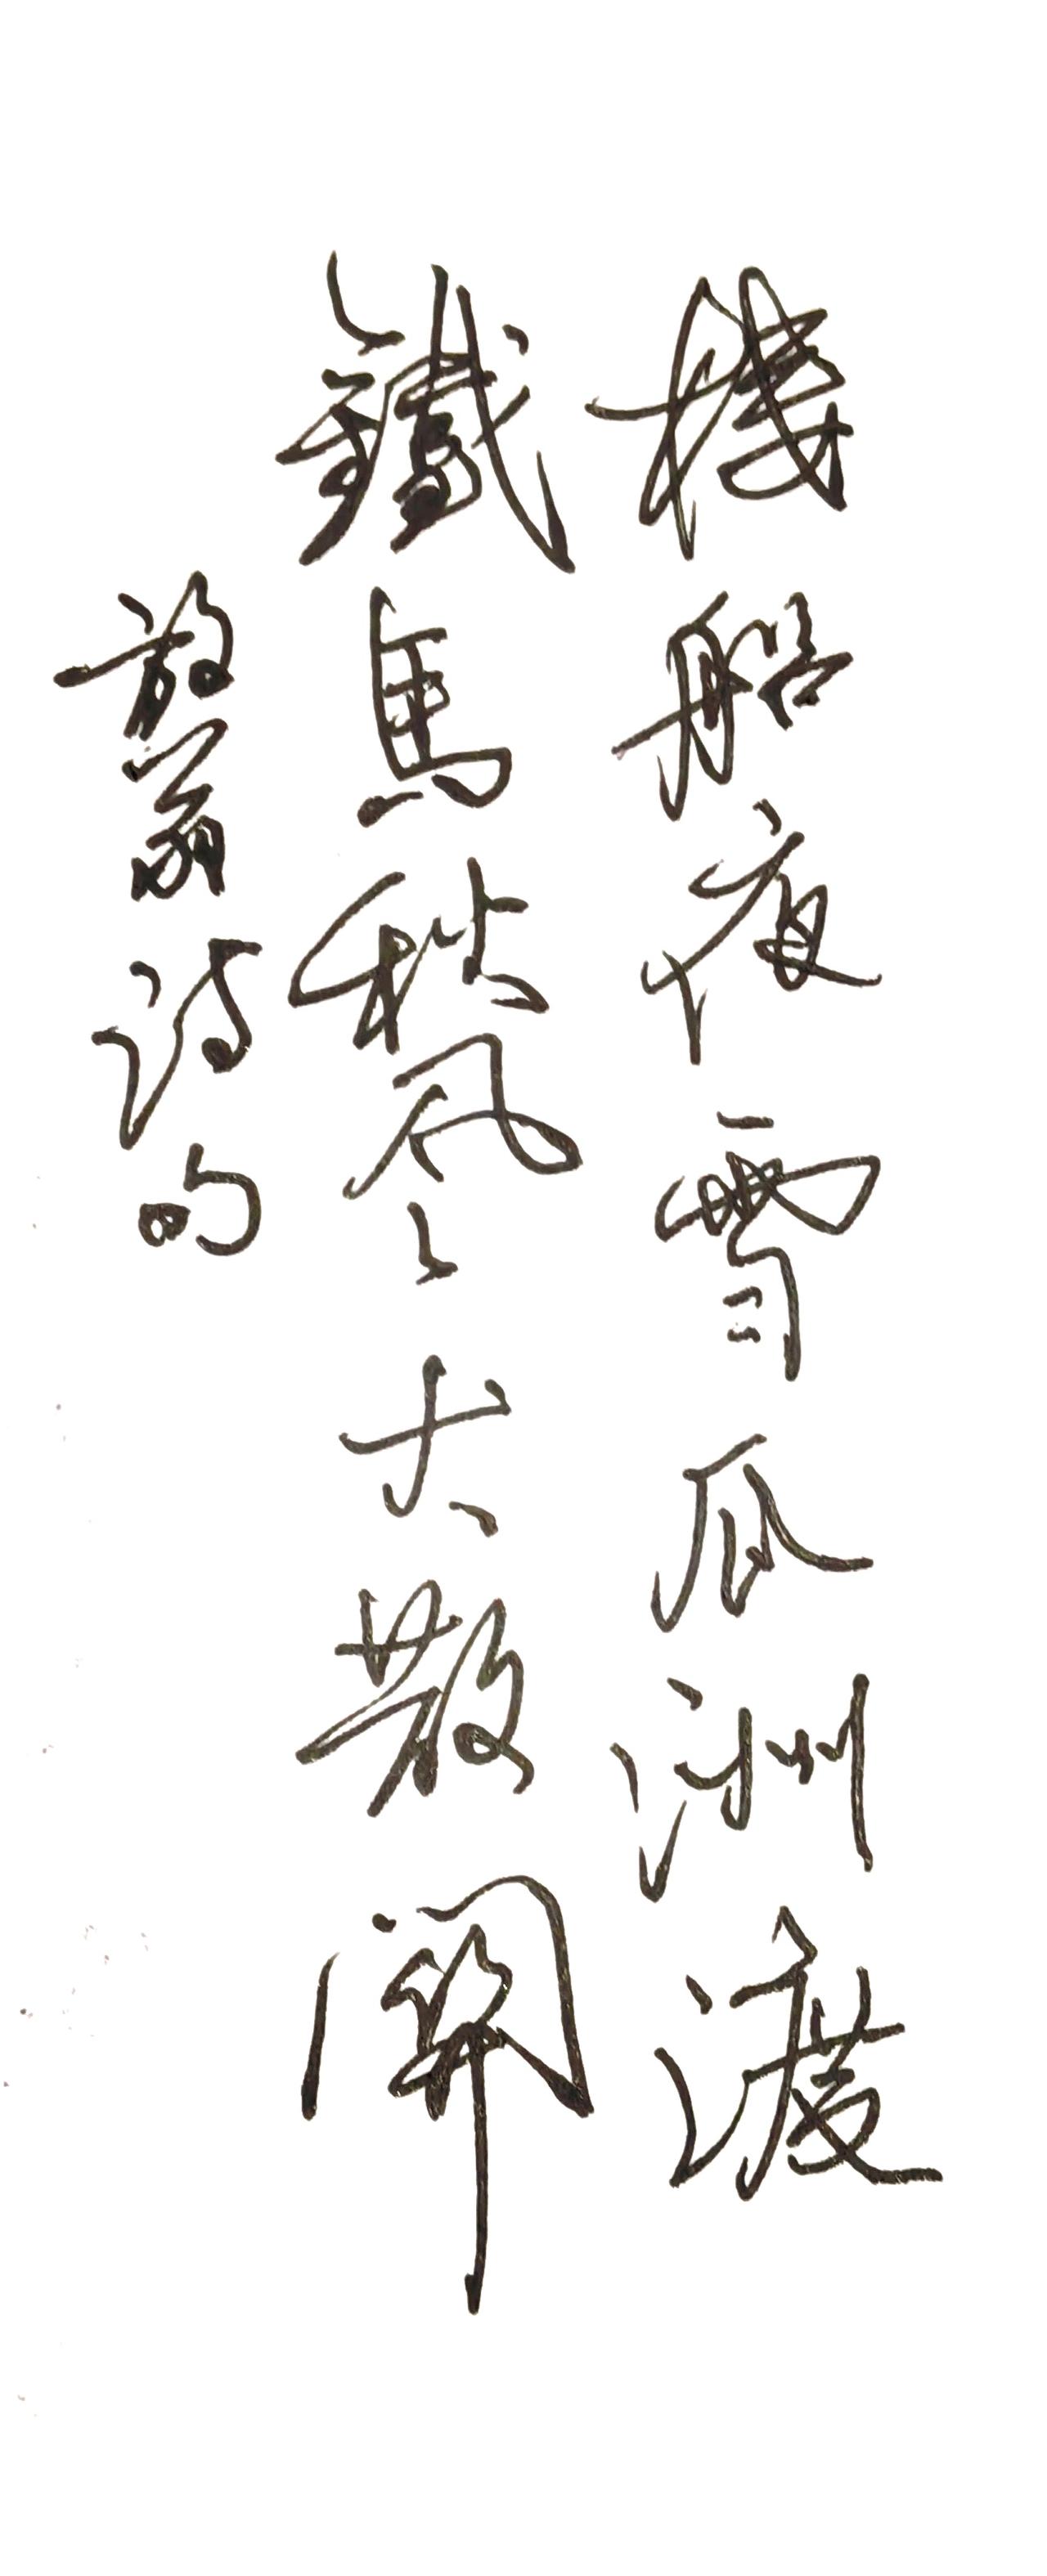 樓船夜雪瓜洲渡
鐵馬秋風大散關
放翁詩句